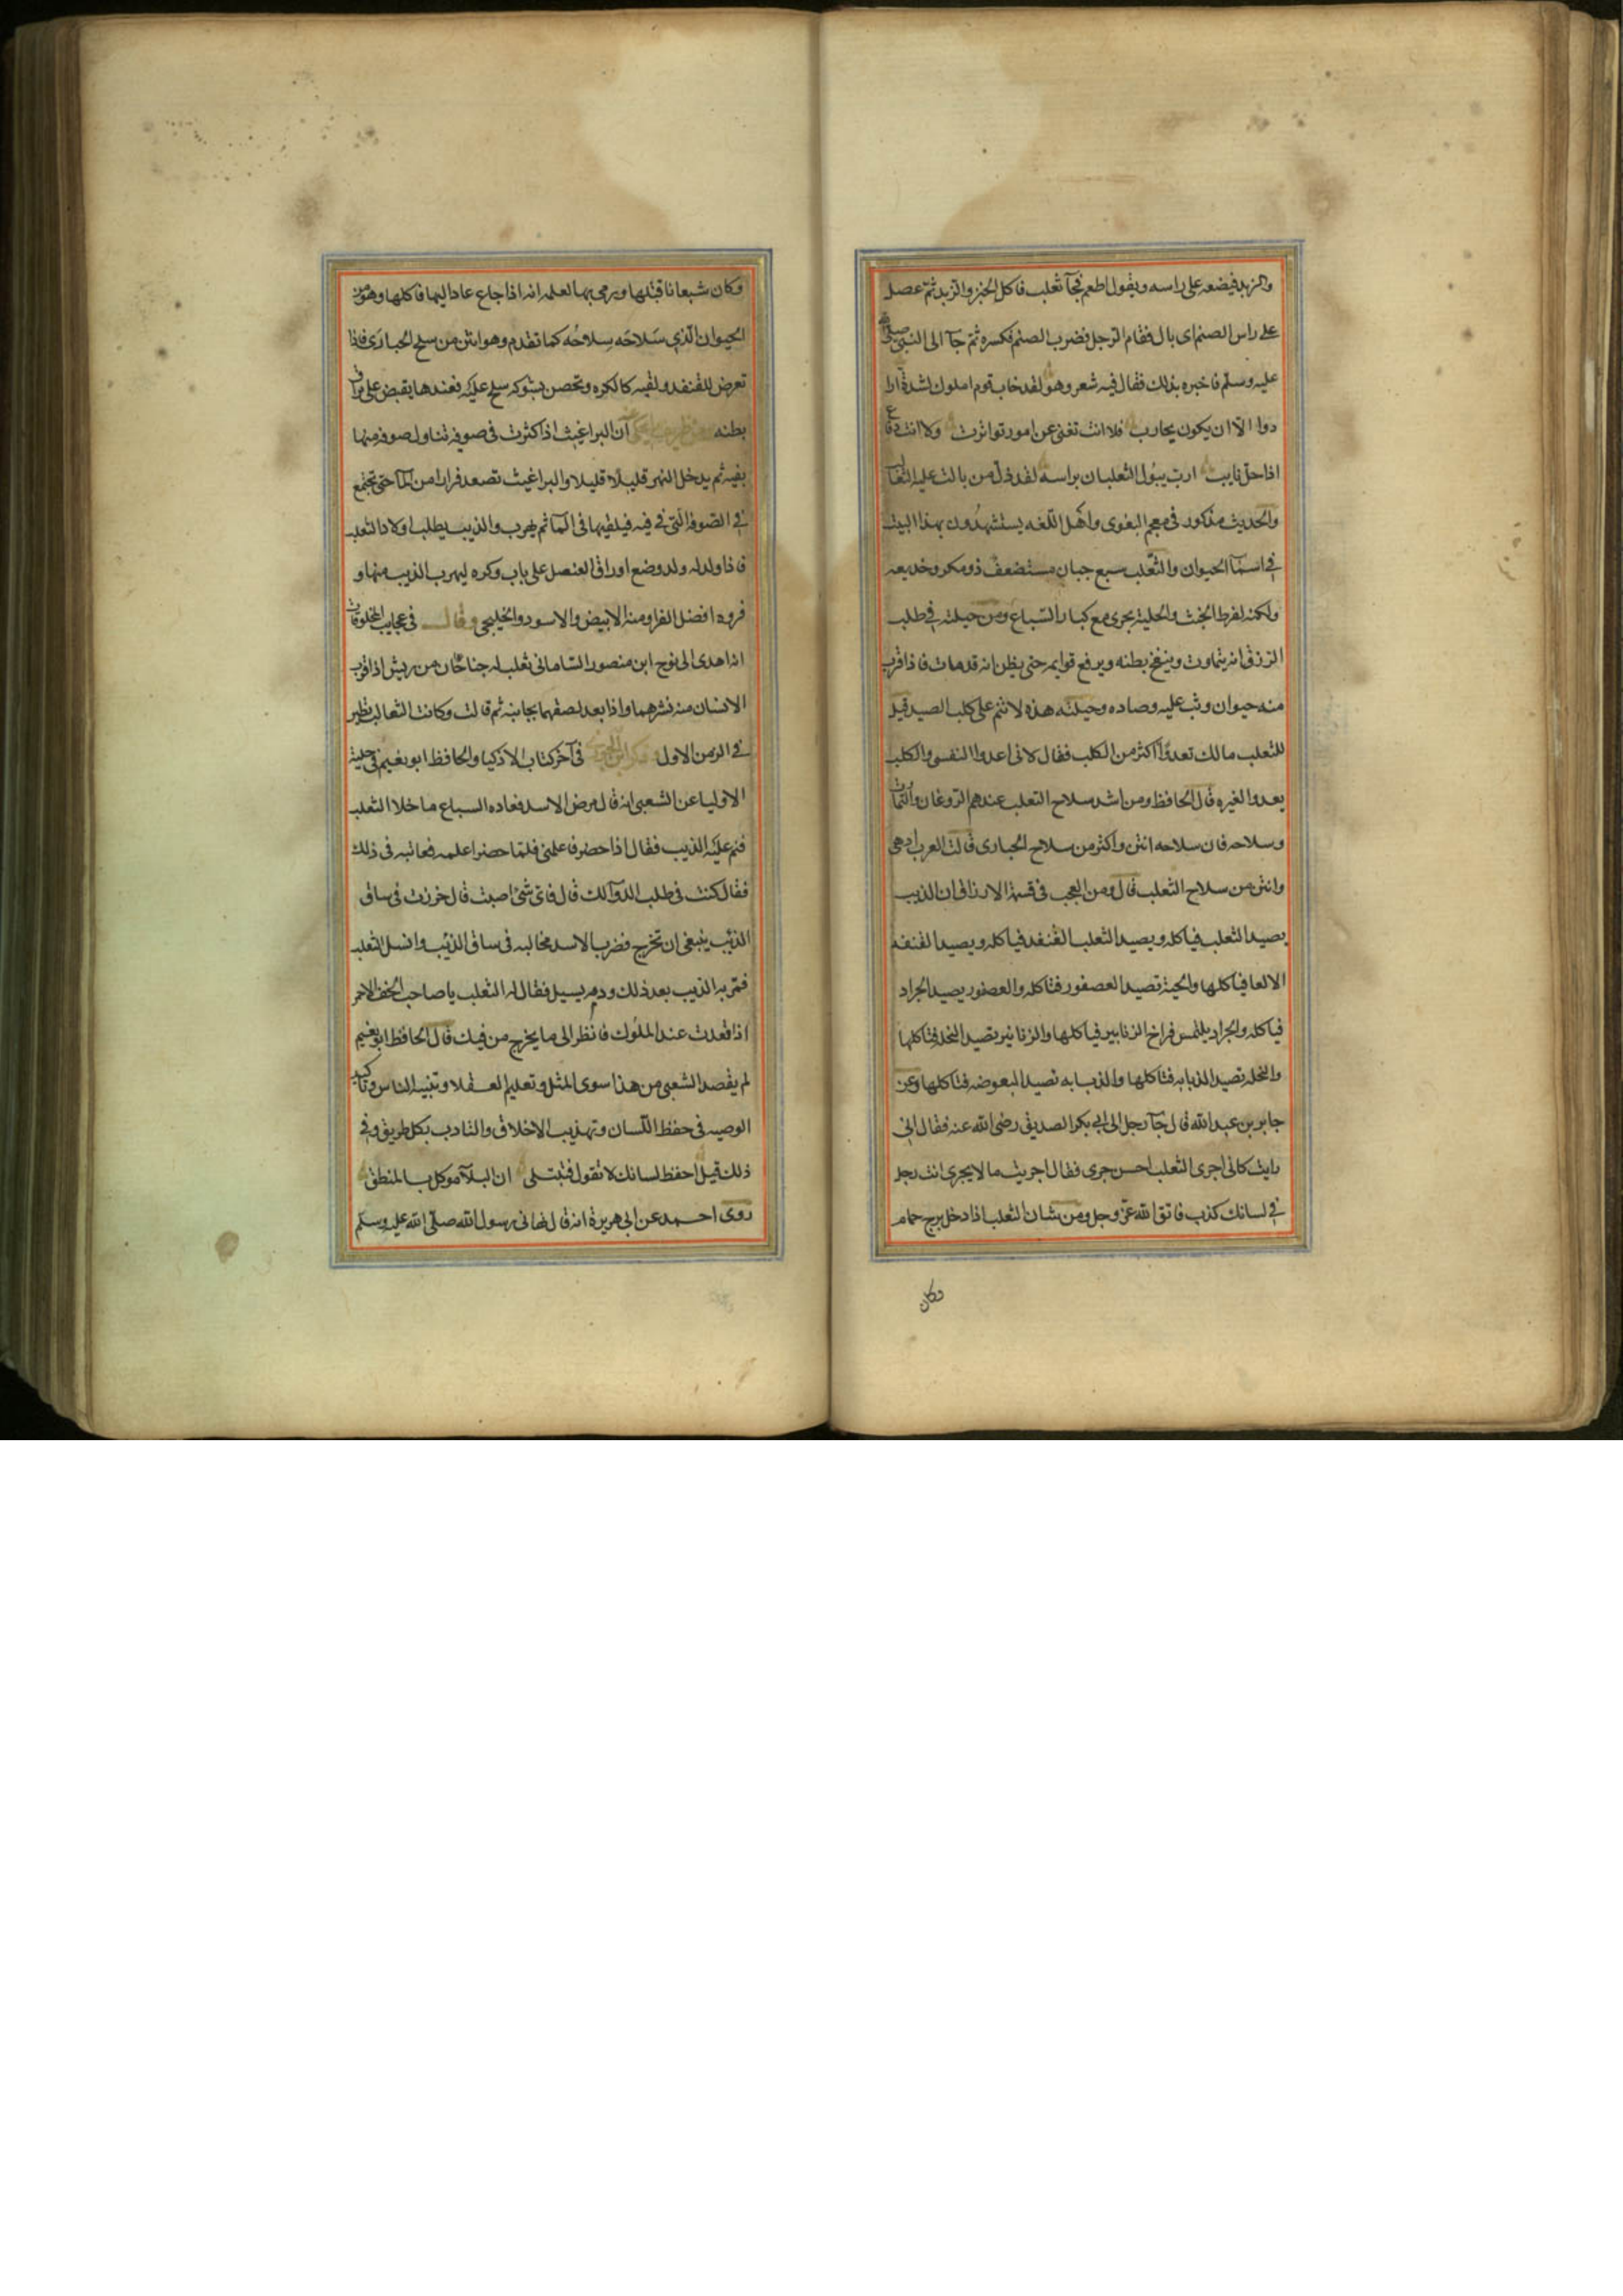 والزبد فيضعه على راسه ويقول اطعم فجآ ثعلب فاكل الخبز والزبد ثم عصل
على راس الصنم اى بال فقام الرجل فضرب الصنم فكسره ثم جآ الى النبي صلى الله
عليه وسلم فاخبره بذلك فقال فيه شعر وهو لقد خاب قوم املوك لشدة ارا
دوا الا ان يكون يحارب فلا انت تغنى عن امور تواترت ولا انت دفاع
اذا حل نايب ارب يبول الثعلبان براسه لقد ذل من بالت عليه الثعالب
والحديث مذكور فى معجم البغوى واهل اللغه يستشهدون بهذا البيت
فى اسمآ الحيوان والثعلب سبع جبان مستضعف ذو مكر وخديعه
ولكنه لفرط الخبث والحلية يجرى مع كبار السباع ومن حيلته فى طلب
الرزق انه يتماوت وينفخ بطنه ويرفع قوايمه حتى يظن انه قد مات فاذا قرب
منه حيوان وثب عليه وصاده وحيلته هذه لا تتم على كلب الصيد قيل
للثعلب مالك تعدوا اكثر من الكلب فقال لانى اعدوا لنفسى والكلب
يعدوا لغيره قال الحافظ ومن اشد سلاح الثعلب عندهم الروغان والتماوت
وسلاحه فان سلاحه انتن واكثر من سلاح الحبارى قالت العرب ادهى
وانتن من سلاح الثعلب قال ومن العجب فى قسمة الارزاق ان الذيب
يصيد الثعلب فياكله ويصيد الثعلب القنفد فياكله ويصيد القنفد
الافعا فياكلها والحية تصيد العصفور فتاكله والعصفور يصيد الجراد
فياكله والجراد يلتمس فراخ الزنابير فياكلها والزنابير تصيد النحلة فتاكلها
والنحله تصيد الذبابه فتاكلها والذبابه تصيد البعوضه فتاكلها وعن
جابر بن عبد الله قال جآ رجل الى ابى بكر الصديق رضى الله عنه فقال انى
رايت كانى اجرى الثعلب احسن جرى فقال اجريت ما لا يجرى انت رجل
فى لسانك كذب فاتق الله عز وجل ومن شان الثعلب اذا دخل برج حمام
وكان
وكان شبعانا قتلها ويرمى بها لعلمه انه اذا جاع عاد اليها فاكلها وهو من
الحيوان الذي سلاحه سلاحه كما تقدم وهو انتن من سلح الحبارى فاذا
تعرض للقنفد ولقيه كالكره وتحصن بشوكه سلح عليه فعندها يقبض على مراق
بطنه ان البراغيث اذا كثرت فى صوفه تناول صوفه منها
بفيه ثم يدخل النهر قليلا قليلا والبراغيث تصعد فرارا من المآ حتى تجتمع
فى الصوفة التى فى فيه فيلقيها فى المآ ثم يهرب والذيب يطلب اولاد الثعلب
فاذا ولد له ولد وضع اوراق العنصل على باب وكره ليهرب الذيب منها و
فروه افضل الفرا ومنه الابيض والاسود والخليجى وقال فى عجايب المخلوقات
انه اهدى الى نوح ابن منصور السامانى ثعلب له جناحان من ريش اذا قرب
الانسان منه نشرهما واذا بعد لصقهما بجانبه ثم قالت وكانت الثعالب تطير
فى الزمن الاول فى آخر كتاب الاذكيا والحافظ ابو نعيم فى حلية
الاوليا عن الشعبى انه قال مرض الاسد فعاده السباع ما خلا الثعلب
فنم عليه الذيب فقال اذا حضر فاعلمنى فلما حضر اعلمه فعاتبه فى ذلك
فقال كنت فى طلب الدوآ لك قال فاى شئ اصبت قال خرزت فى ساق
الذئب ينبغى ان تخرج فضرب الاسد مخالبه فى ساق الذئب وانسل الثعلب
فمر به الذيب بعد ذلك ودمه يسيل فقال له الثعلب يا صاحب الخف الاحمر
اذا قعدت عند الملوك فانظر الى ما يخرج من فيك قال الحافظ ابو نعيم
لم يقصد الشعبى من هذا سوى المثل وتعليم العقلا وتنبيه الناس وتاكيد
الوصيه فى حفظ اللسان وتهذيب الاخلاق والتادب بكل طريق وفى
ذلك قيل احفظ لسانك لا تقول فتبتلى ان البلآ موكل بالمنطق
روى احمد عن ابى هريرة انه قال نهانى رسول الله صلى الله عليه وسلم